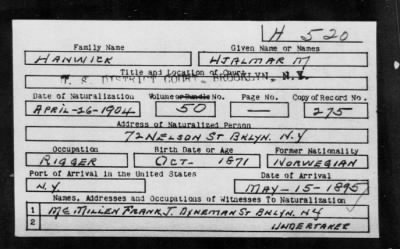 H 520
Family Name Given Name or Names
HANWICK HJALMAR M
Title and Location of Court
U. S. DISTRICT COURT, BROOKLYN, N.Y.
Date of Naturalization Volume or Bundle No. Page No. Copy of Record No.
APRIL-26-1904 50 — 275
Address of Naturalized Person
72 NELSON ST BKLYN. N.Y
Occupation Birth Date or Age Former Nationality
RIGGER OCT- 1871 NORWEGIAN
Port of Arrival in the United States Date of Arrival
N.Y. MAY-15-1895
Names, Addresses and Occupations of Witnesses To Naturalization
1 MCMILLEN FRANK J. DYNEMAN ST BKLYN. NY
2 UNDERTAKER